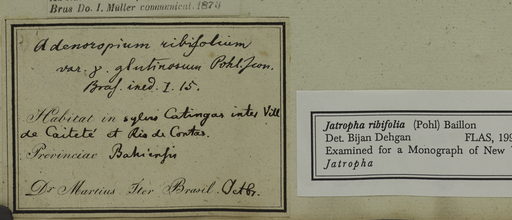 Brus Do. I. Muller communicat. 1874
Adenoropium ribifolium
var. γ. glutinosum Pohl. Icon.
Bras. ined. I. 15.
Habitat in sylvis Catingas inter Vill
de Caiteté et Rio de Contas.
Provinciae Bahiensis
Dr Martius Iter Brasil. Octbr.
Jatropha ribifolia (Pohl) Baillon
Det. Bijan Dehgan FLAS, 199
Examined for a Monograph of New
Jatropha